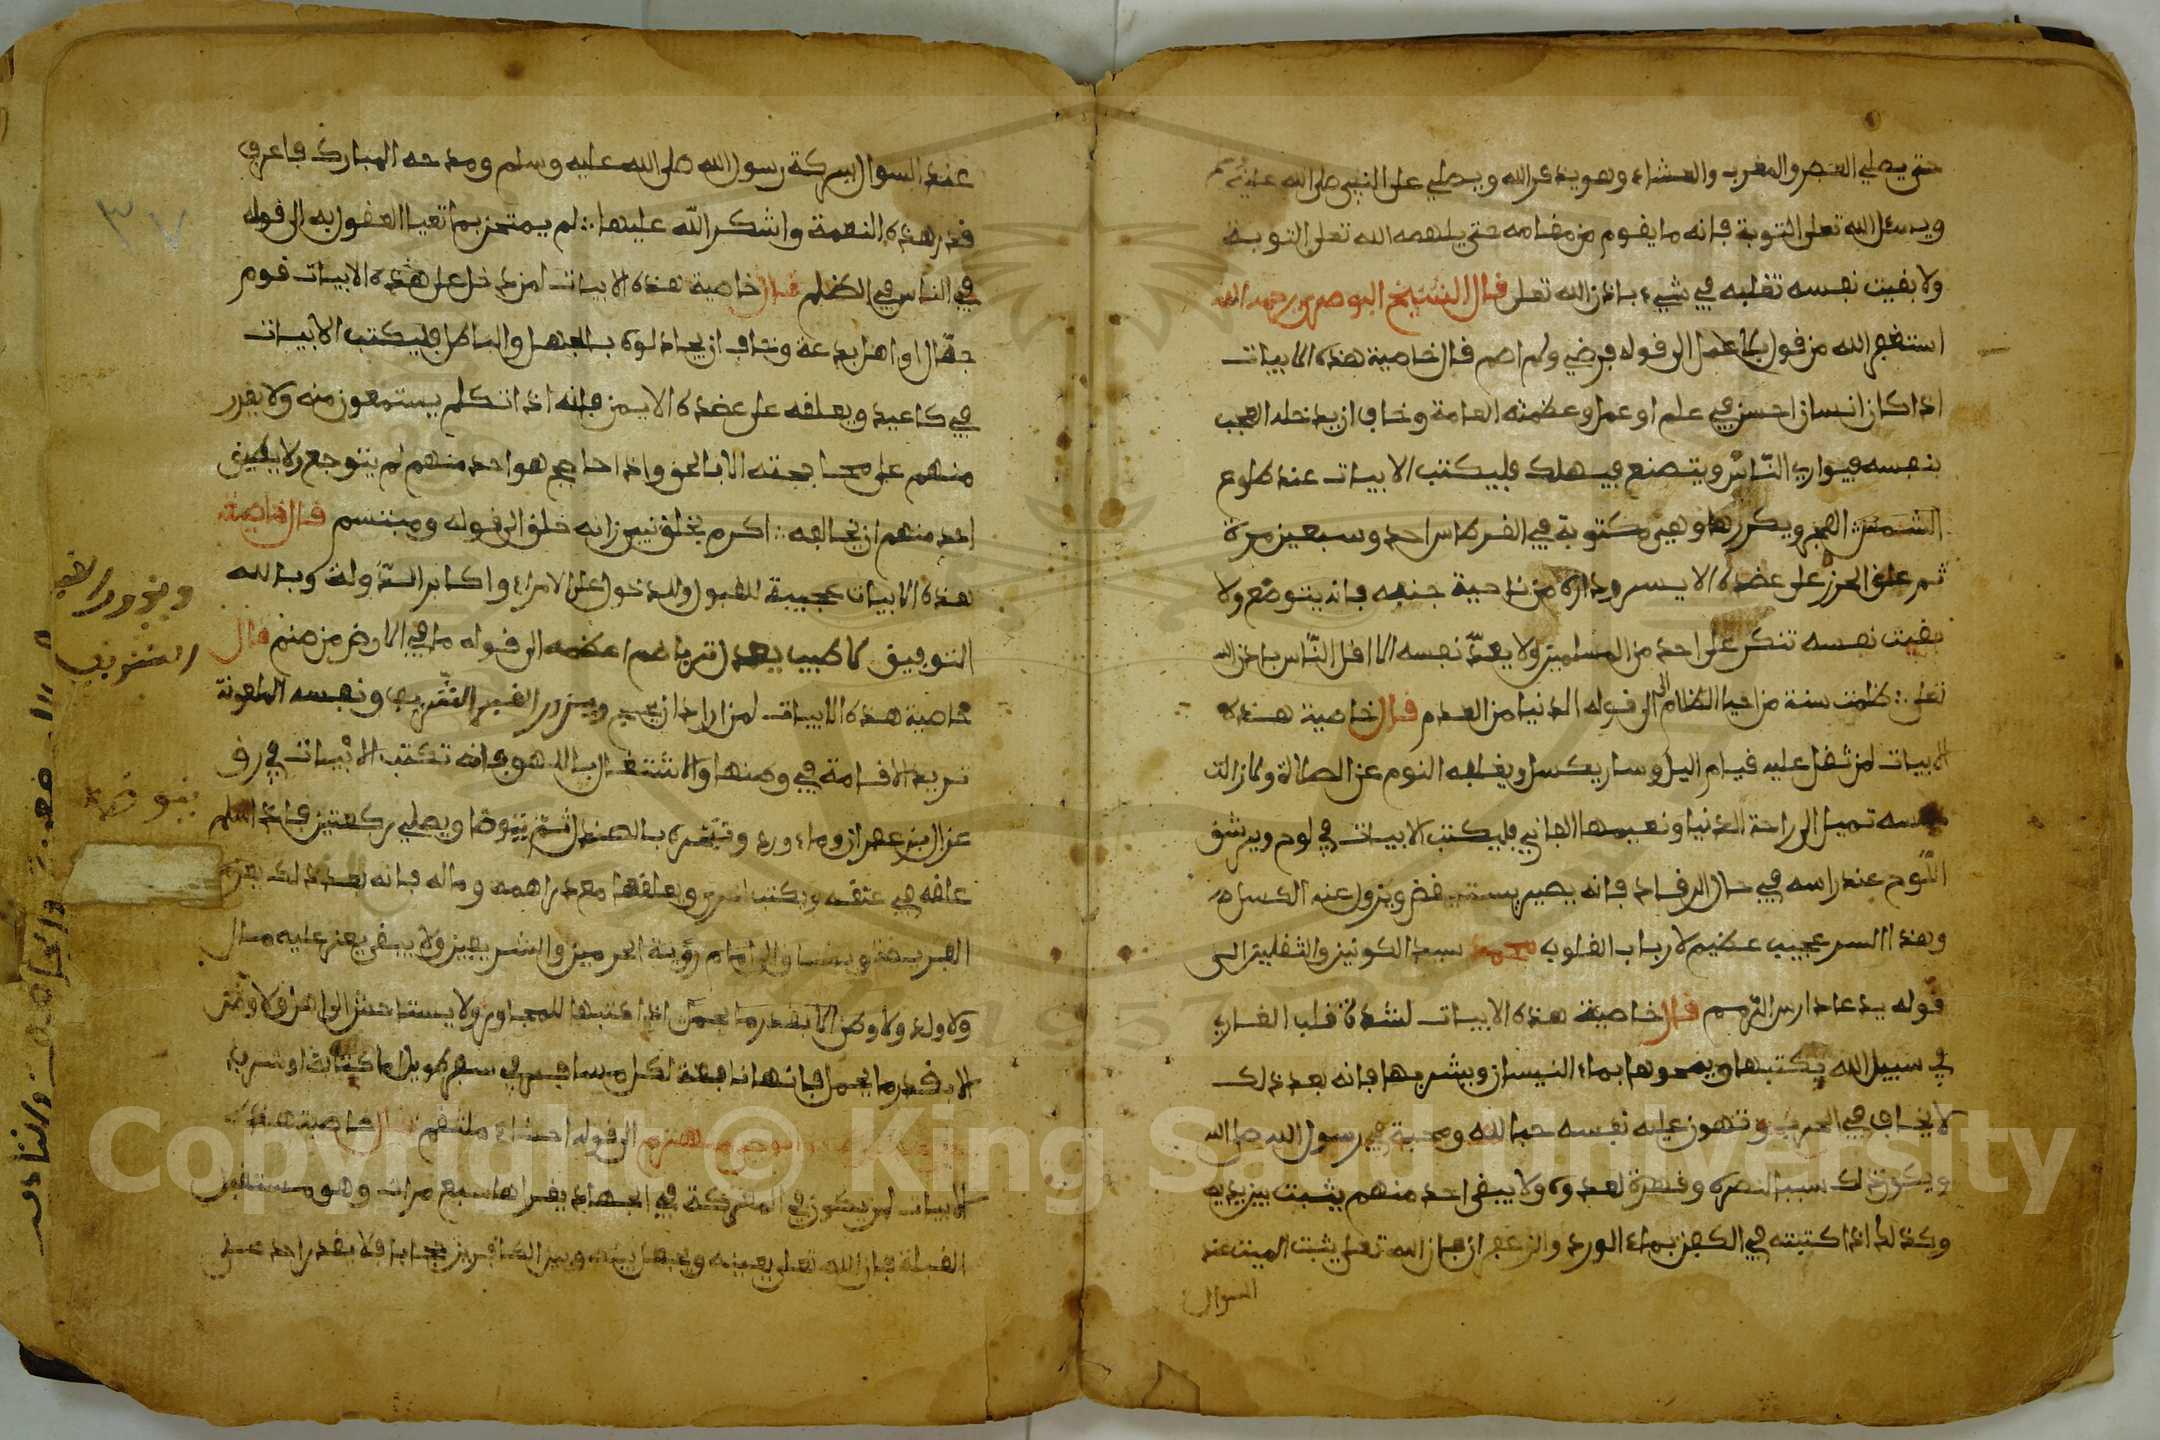 حتى يصلي العصر والمغرب والعشاء وهو يذكر الله ويصلي على النبي صلى الله عليه
ويسئل الله تعلى التوبة فانه ما يقوم من مقامه حتى يلهمه الله تعلى التوبة
ولا بقيت نفسه تغلبه في شيء باذن الله تعلى قال الشيخ البوصيري رحمه الله
استغفر الله من قول بلا عمل الى قوله فرض ولم اصم قال خاصية هذه الابيات
اذا كان انسان احسن في علم او عمل وعظمته العامة وخاف ان يدخله العجب
بنفسه فيوارى الناس ويتصنع فيهلك فليكتب الابيات عند طلوع
الشمس الفجر ويكررها وهي مكتوبة في القرطاس احد وسبعين مرة
ثم علق الحرز على عضده الايسر وداره من ناحية جنبه فانه يتوضع ولا
بقيت نفسه تنكر على احد من المسلمين ولا يعد نفسه الا اقل الناس باذن الله
تعلى ∴ ظلمت سنة من احيا الظلام الى قوله الدنيا من العدم قال خاصية هذه
الابيات لمن ثقل عليه قيام اليل وصار يكسل ويغلبه النوم عن الصلاة وكانت
نفسه تميل الى راحة الدنيا ونعيمها الفاني فليكتب الابيات في لوح ويرشق
اللوح عند راسه في حال الرقاد فانه يصير يستيقض ويزول عنه الكسل
وهذا السر عجيب عظيم لارباب القلوب محمد سيد الكونين والثقلين الى
قوله يدعا دارس الرمم قال خاصية هذه الابيات لشدة قلب الغازي
في سبيل الله يكتبها ويمحوها بماء النيسان ويشربها فانه بعد ذلك
لا يخاف في الحرب وتهون عليه نفسه حبا لله ومحبة في رسول الله صلى الله
ويكون ذلك سبب النصره وقهرة لعدوه ولا يبقى احد منهم يثبت بين يديه
وكذلك اذا كتبته في الكفن بماء الورد والزعفران فان الله تعلى يثبت الميت عند
السوال
عند السوال ببركة رسول الله صلى الله عليه وسلم ومدحه المبارك فاعرف
قدر هذه النعمة واشكر الله عليها ∴ لم يمتحن بما تعيا العقول به الى قوله
في الناس في الظلم قال خاصية هذه الابيات لمن دخل على هذه الابيات قوم
جهال او اهل بدعة وخاف ان يجادلوه بالجهل والباطل فليكتب الابيات
في كاغيد ويعلقه على عضده الايمن فانه اذا تكلم يستمعون منه ولا يقدر
منهم على محاججته الا بالحق واذا حاجج هو احد منهم لم يتوجع ولا يطيق
احد منهم ان يخالفه ∴ اكرم بخلق نبي زانه خلق الى قوله ومبتسم قال خاصية
هذه الابيات عجيبة للقبول وللدخول على الامراء واكابر الدولة وبالله
التوفيق لا طيب يعدل تربا ضم اعظمه الى قوله ما في الارض من صنم قال
خاصية هذه الابيات لمن اراد ان يحج ويزور القبر الشريف ونفسه الملعونة
تريد الاقامة في وطنها والاشتغال باللهو فانه تكتب الابيات في رق
غزال بزعفران وماء ورد وتبخره بالصندل ثم يتوضا ويصلي ركعتين فاذا سلم
علقه في عنقه ويكتب اخرى ويعلقها مع دراهمه وماله فانه بعد ذلك يعزم
الفريضة ويشتاق الى امام رؤية الحرمين والشريفين ولا يبقى يعز عليه مال
ولا ولد ولا وطن
لا يقدر ما يحمل فانها نافعة لكل مسافر في سفر طويل اما كتابة او شرب
الى قوله احشاء ملتقم قال خاصية هذه
الابيات لمن يكون في المعركة في الجهاد يقراها سبع مرات وهو مستقبل
القبلة فان الله تعلى يعينه ويجعل بينه وبين الكافرين حجابا فلا يقدر احد على
ويزور القبر
الشريف
٣٧